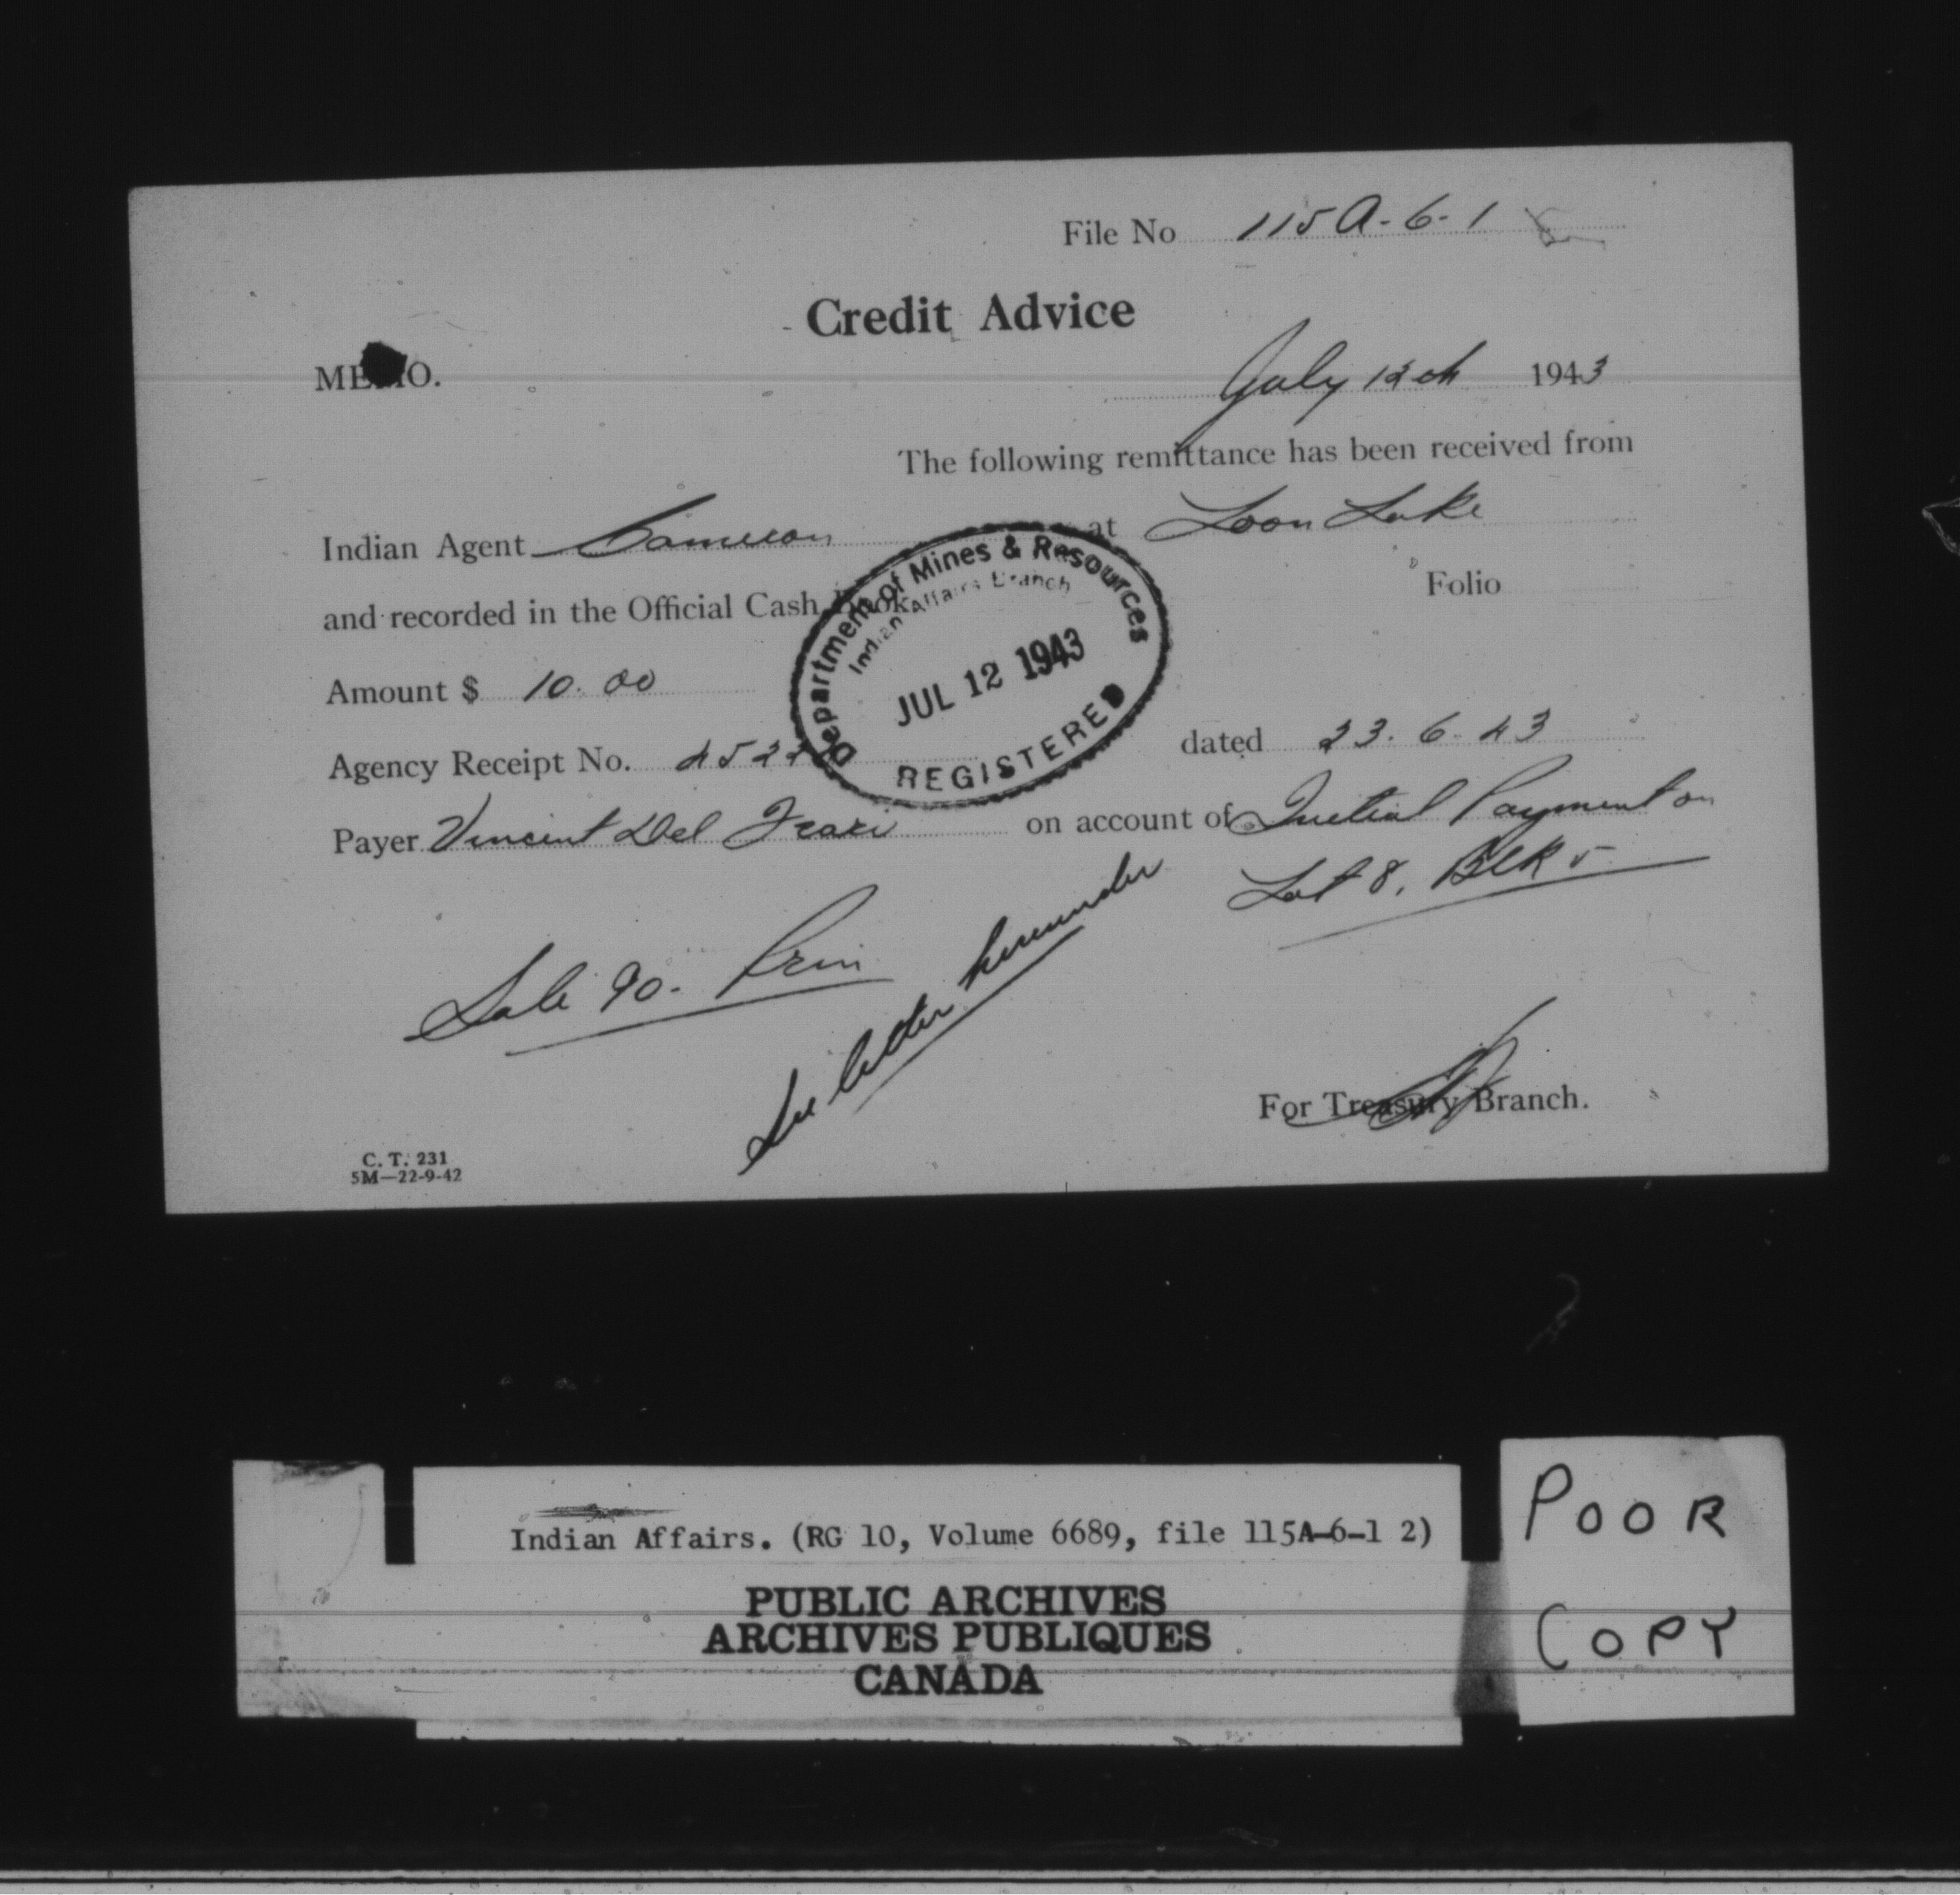 File No 115A-6-1
Credit Advice
MEMO.
July 12th 1943
The following remittance has been received from
Indian Agent Cameron at Loon Lake
and recorded in the Official Cash Book. Folio
Department of Mines & Resources
Indian Affairs Branch
JUL 12 1943
REGISTERED
Amount $ 10.00
Agency Receipt No. 4522 dated 23.6.43
Payer Vincent Del Frari on account of Initial Payment on
Lot 8, Blk 5
Sale 90. Prin
See letter hereunder
For Treasury Branch.
C. T. 231
5M—22-9-42
Indian Affairs. (RG 10, Volume 6689, file 115A-6-1 2)
PUBLIC ARCHIVES
ARCHIVES PUBLIQUES
CANADA
POOR
COPY